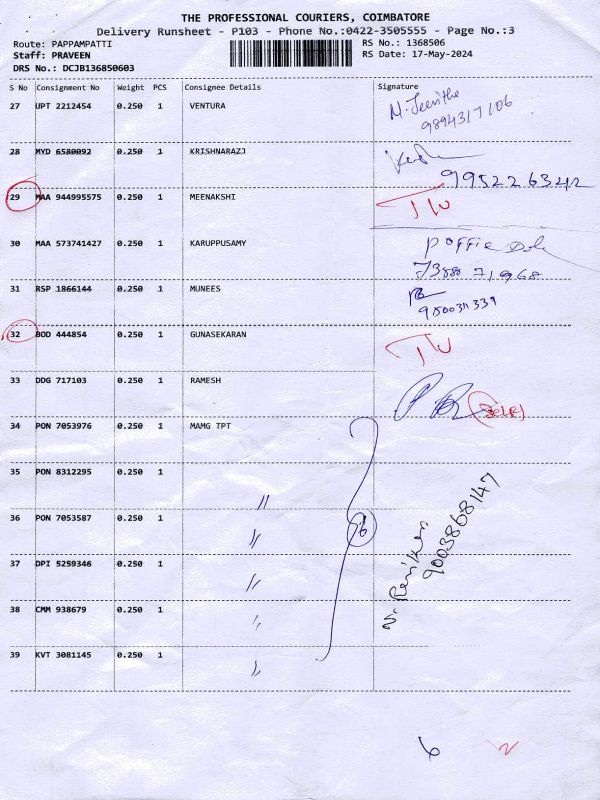 THE PROFESSIONAL COURIERS, COIMBATORE
Delivery Runsheet - P103 - Phone No.:0422-3505555 - Page No.:3
Route: PAPPAMPATTI RS No.: 1368506
Staff: PRAVEEN RS Date: 17-May-2024
DRS No.: DCJB136850603
S No Consignment No Weight PCS Consignee Details Signature
27 UPT 2212454 0.250 1 VENTURA
28 MYD 6580092 0.250 1 KRISHNARAZJ
9952263242
29 MAA 944995575 0.250 1 MEENAKSHI
30 MAA 573741427 0.250 1 KARUPPUSAMY
31 RSP 1866144 0.250 1 MUNEES
32 BOD 444854 0.250 1 GUNASEKARAN
33 DDG 717103 0.250 1 RAMESH
34 PON 7053976 0.250 1 MAMG TPT
35 PON 8312295 0.250 1 〃
36 PON 7053587 0.250 1 〃 6
37 DPI 5259346 0.250 1 〃
38 CMM 938679 0.250 1 〃
39 KVT 3081145 0.250 1 〃
9003868147
6 2